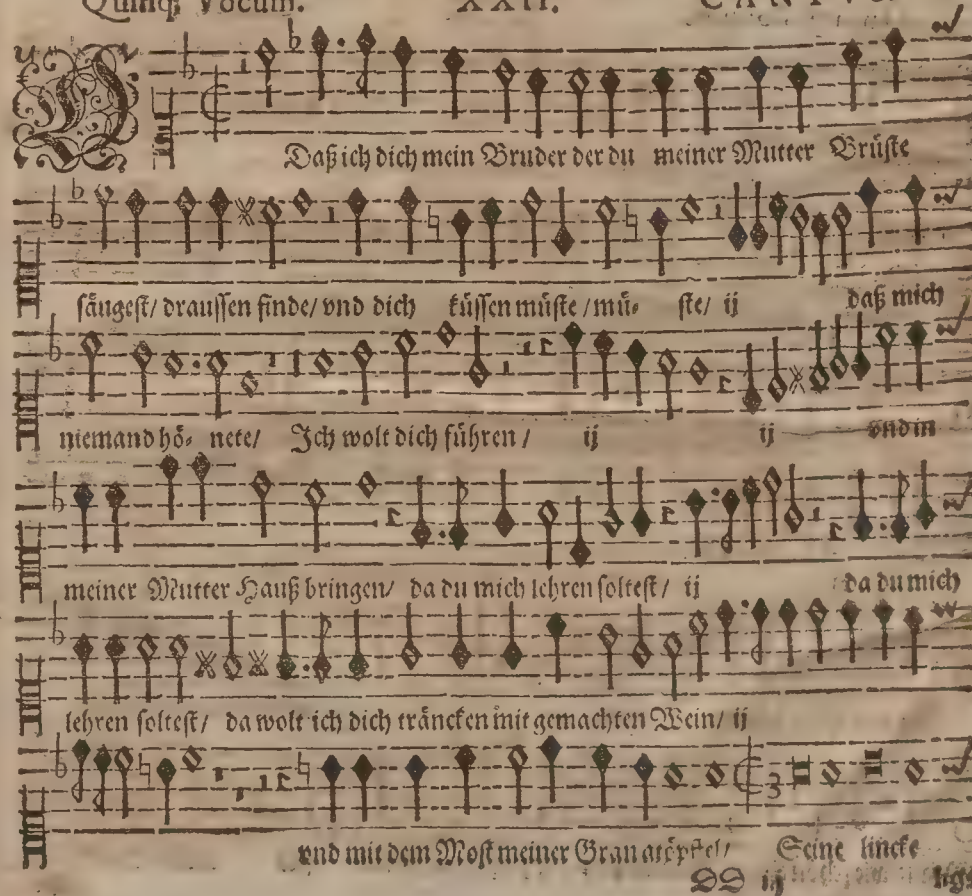 Quinq; Vocum. XXII. CANTVS.
O
Daß ich dich mein Bruder der du meiner Mutter Brüste
säugest/ draussen finde/ vnd dich küssen müste/ mü- ste/ ij daß mich
niemand hö- nete/ Ich wolt dich führen/ ij ij vnd in
meiner Mutter Hauß bringen/ da du mich lehren soltest/ ij da du mich
lehren soltest/ da wolt ich dich träncken mit gemachten Wein/ ij
vnd mit dem Most meiner Granatöpffel/ Seine lincke
DD ij